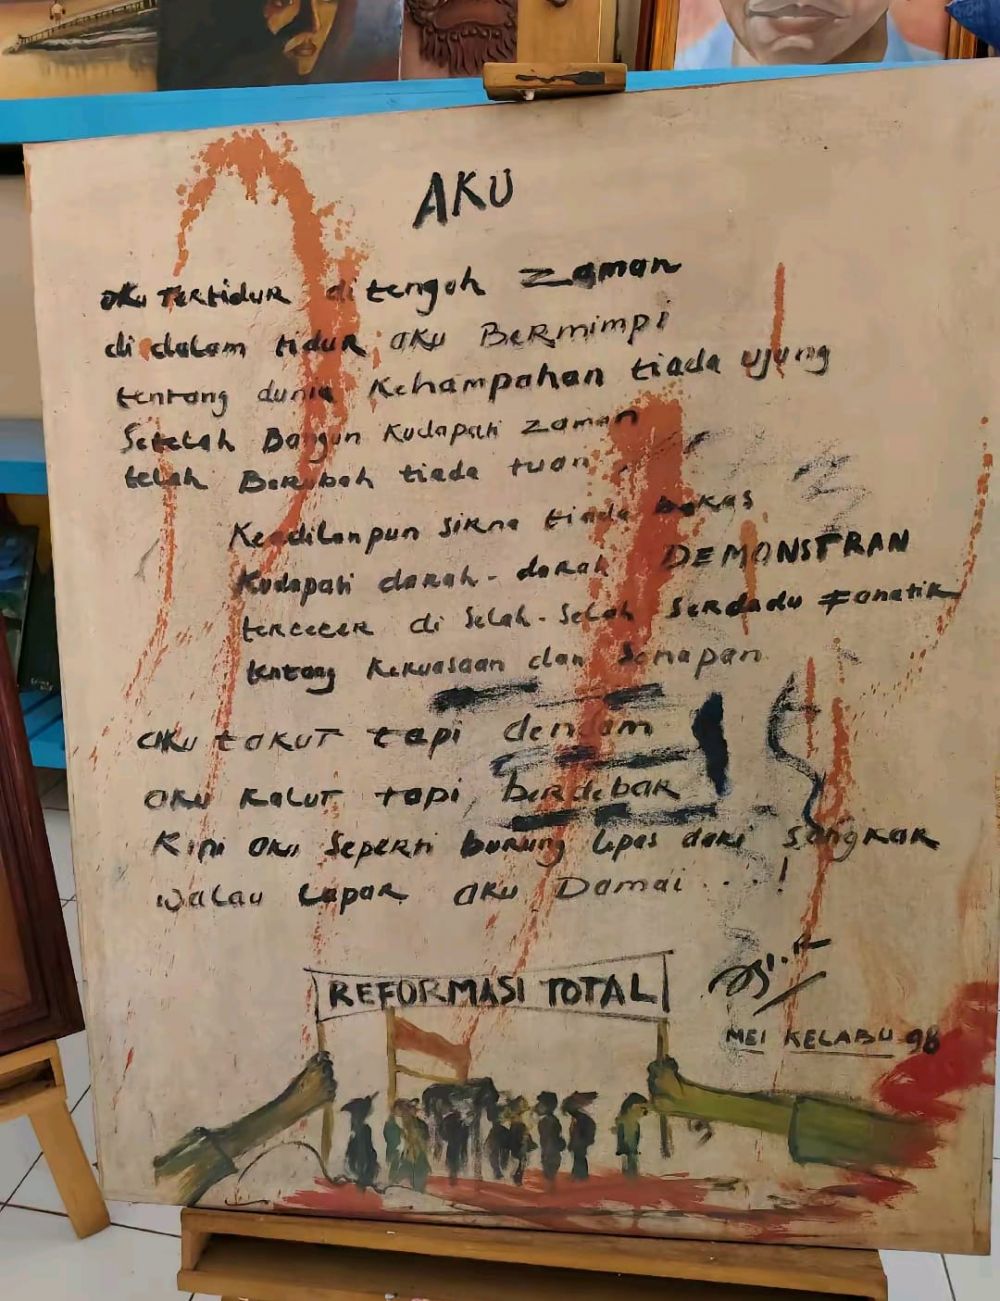 AKU
aku tertidur ditengah zaman
di dalam tidur aku Bermimpi
tentang dunia Kehampahan tiada ujung
Setelah Bangun Kudapati zaman
telah Berubah tiada tuan
Keadilanpun sirna tiada bekas
Kudapati darah-darah DEMONSTRAN
tercecer di Selah-Selah Serdadu Fanatik
tentang Kekuasaan dan Senapan
aku takut tapi dendam
aku kalut tapi berdebar
Kini aku Seperti burung lepas dari sangkar
walau Lapar aku Damai...!
REFORMASI TOTAL
MEI KELABU 98